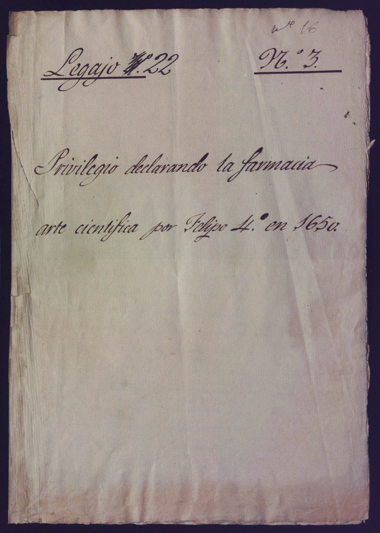 nº 16
Legajo Nº. 22
N.º 3.
Privilegio declarando la farmacia
arte cientifica por Felipe 4.º en 1650.